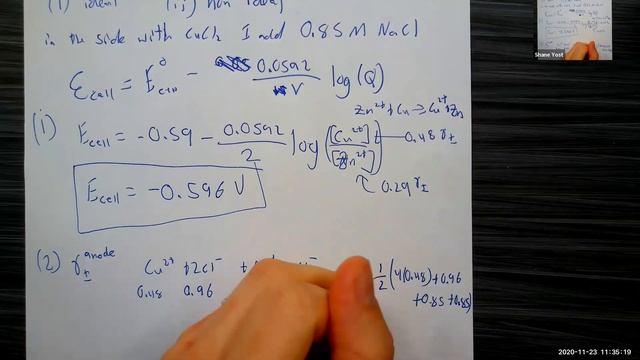 (i) ideal (ii) non ideal
in the side with CuCl₂ I add 0.85 M NaCl
Ecell = E°cell - 0.0592/ν log(Q)
Zn²⁺ + Cu → Cu²⁺ + Zn
(1) Ecell = -0.59 - 0.0592/2 log([Cu²⁺]/[Zn²⁺])
0.48 γ±
0.29 γ±
Ecell = -0.596 V
(2) γ± anode Cu²⁺ + 2Cl⁻
0.48 0.96
1/2 (4(0.48) + 0.96
+0.85 + 0.85)
Shane Yost
2020-11-23 11:35:19